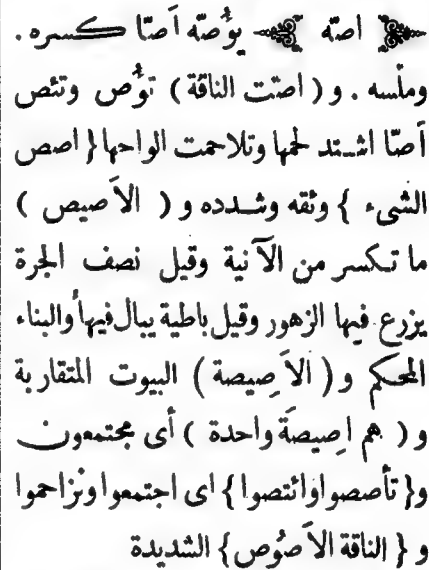 ﴿ اصّه ﴾ يؤُصّه اَصّا كسره .
وملّسه . و ( اصّت الناقة ) تؤُص وتئص
اَصّا اشتد لحمها وتلاحمت الواحها { اصص
الشىء } وثقه وشدده و ( الاَصيص )
ما تكسر من الآنية وقيل نصف الجرة
يزرع فيها الزهور وقيل باطية يبال فيها والبناء
المحكم و ( الاَصِيصة ) البيوت المتقاربة
و ( هم اصِيصَة واحدة ) أى مجتمعون
و { تأصصوا وائتصوا } اى اجتمعوا وتزاحموا
و { الناقة الاَصُوص } الشديدة